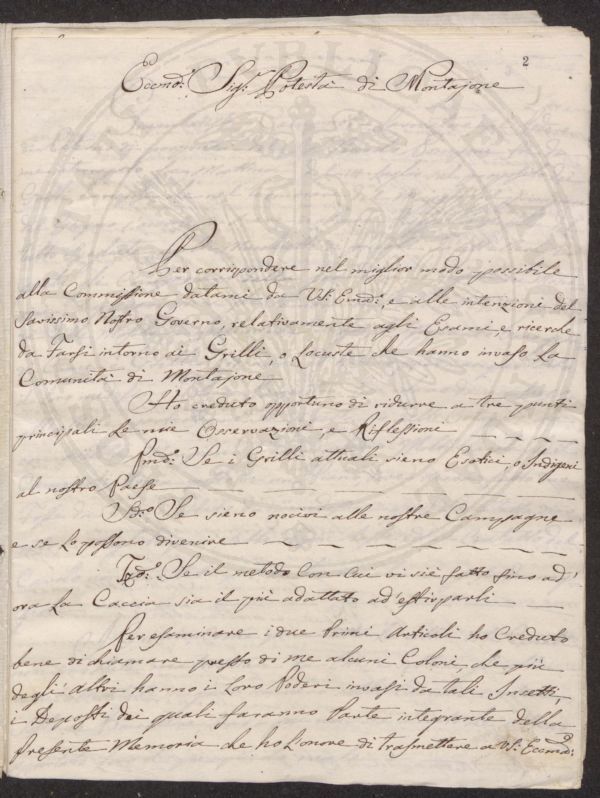 2
Eccmo: Sigr: Potestà di Montajone
Per corrispondere nel miglior modo possibile
alla Commissione datami da VS: Ecmd:, e alle intenzioni del
Savissimo Nostro Governo, relativamente agli Esami, e ricerche
da Farsi intorno ai Grilli, o Locuste che hanno invaso La
Comunità di Montajone
Ho creduto opportuno di ridurre a tre punti
principali Le mie Osservazioni, e Riflessioni
Pmd: Se i Grilli attuali sieno Esotici, o Indigeni
al nostro Paese
Sdo: Se sieno nocivi alle nostre Campagne
e se Lo possono divenire
Tzo: Se il metodo Con Cui vi si è fatto fino ad'
ora La Caccia sia il più adattato ad estirparli
Per esaminare i due Primi Articoli ho Creduto
bene di chiamare presso di me alcuni Coloni, che più
degli Altri hanno i Loro Poderi invasi da tali Insetti,
i Deposti dei quali faranno Parte integrante della
Presente Memoria che ho Lonore di trasmettere a VS: Eccmo: